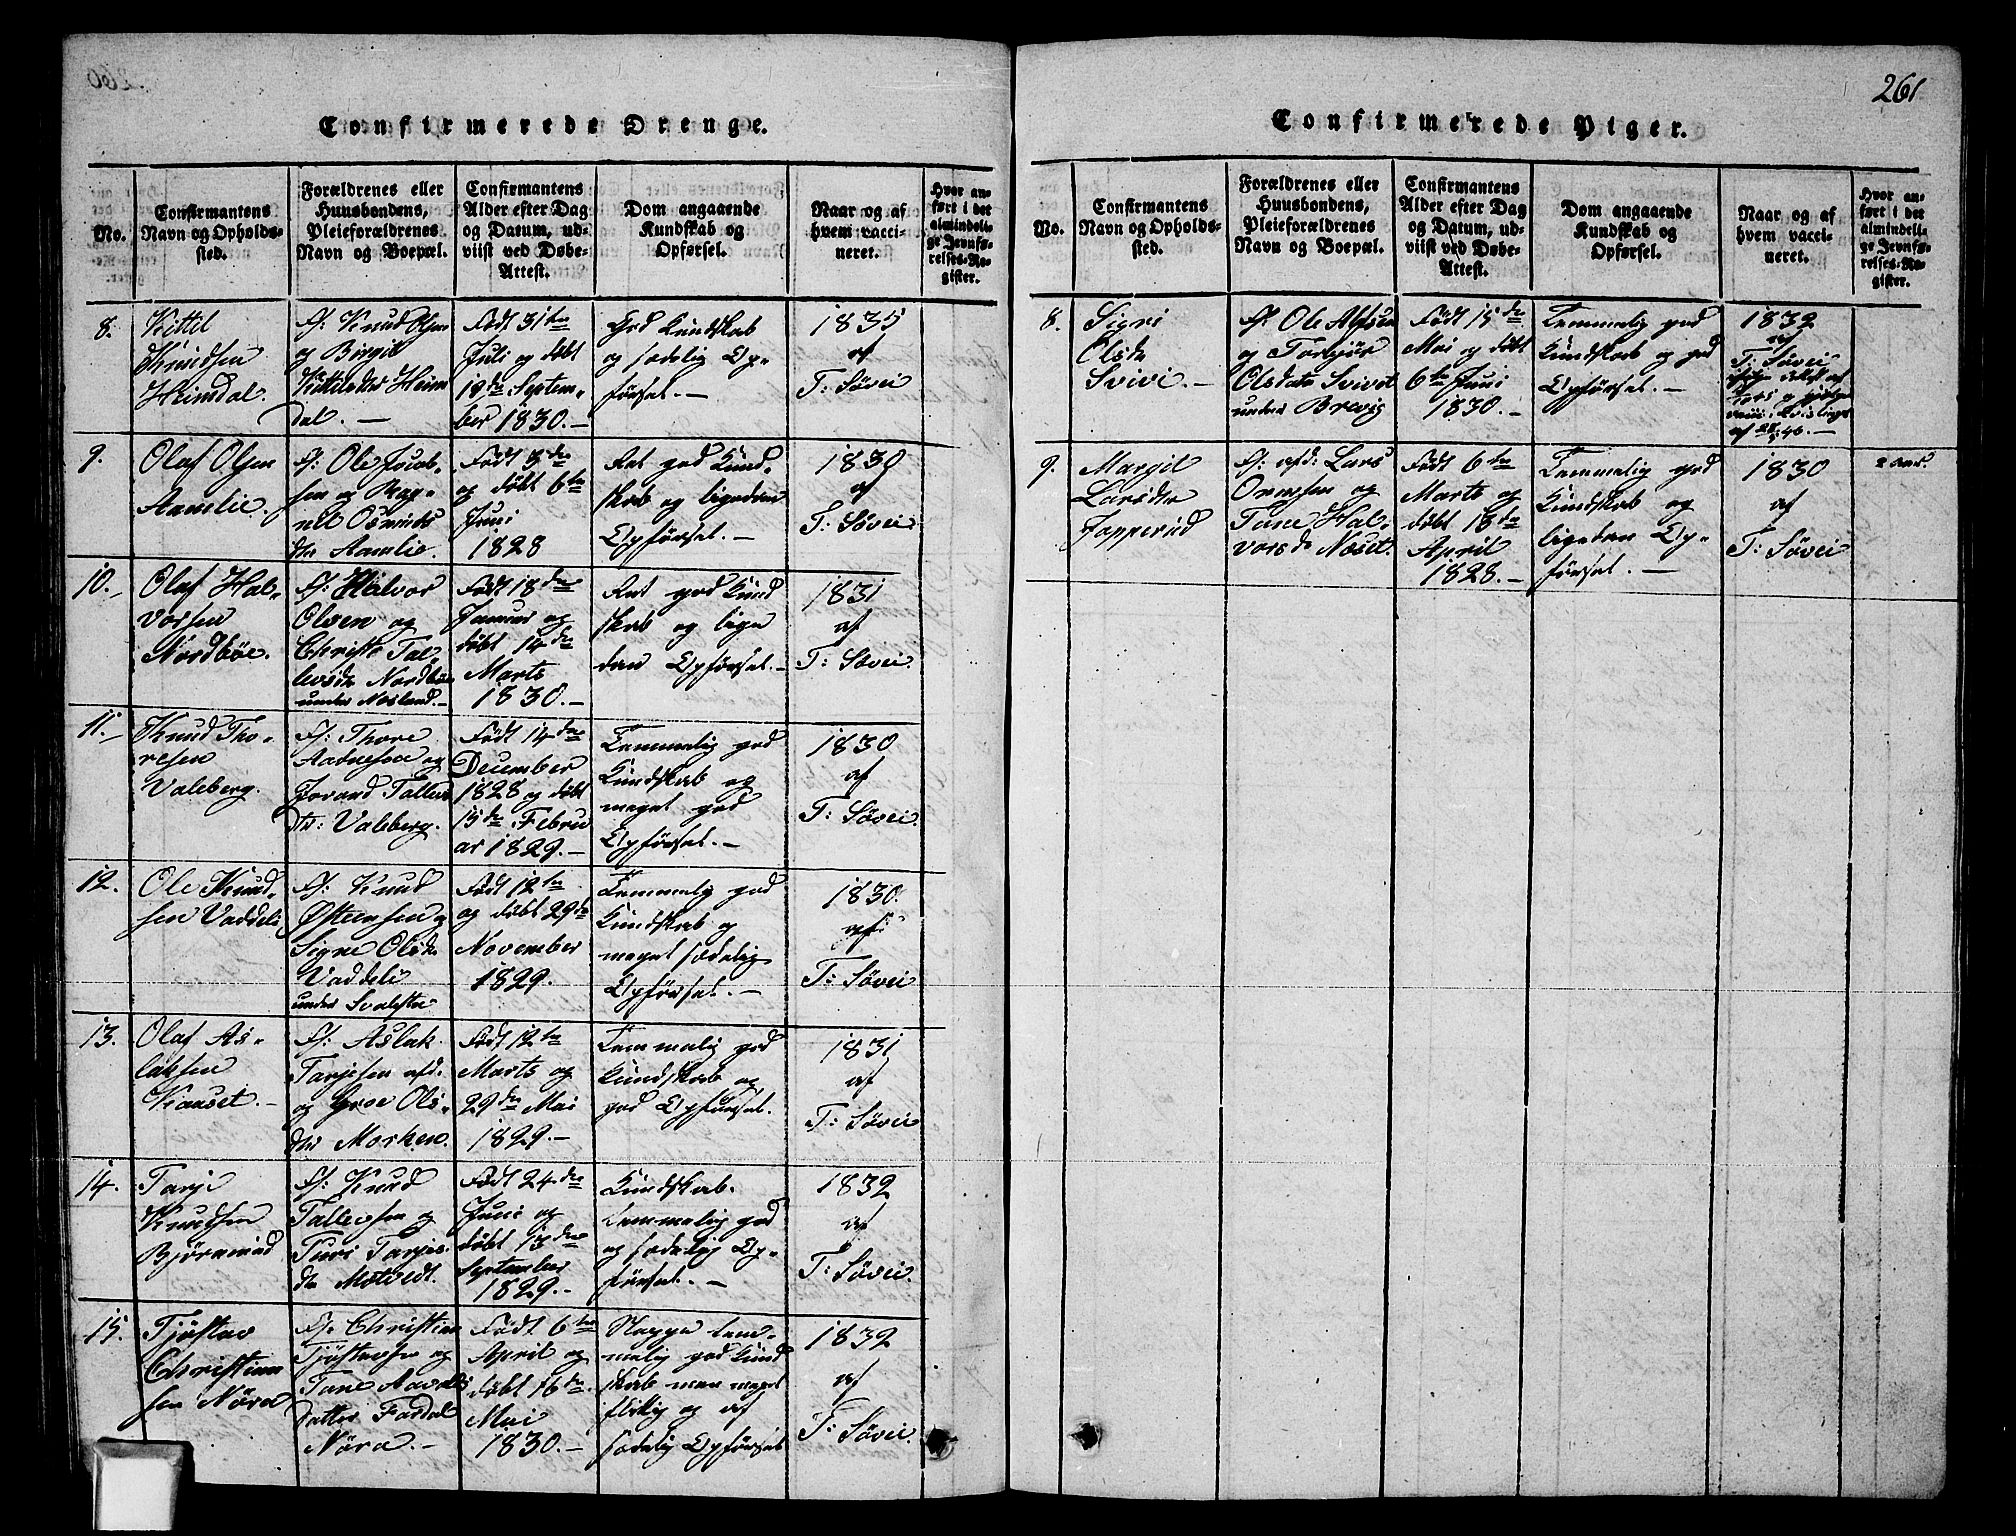 261
Confirmerede Drenge.
No.
Confirmantens
Navn og Opholds-
sted.
Forældrenes eller
Huusbondens,
Pleieforældrenes
Navn og Boepæl.
Confirmantens
Alder efter Dag
og Datum, ud-
viist ved Døbe-
Attest.
Dom angaaende
Kundskab og
Opførsel.
Naar og af
hvem vacci-
neret.
Hvor an-
ført i det
almindeli-
ge Jevnfø-
relses-Re-
gister.
8.
Kittil
Knudsen
Heimdal.
F: Knud Olsen
og Birgit
Kittilsdtr Heim
dal. —
Født 31te
Juli og døbt
19de Septem-
ber 1830. —
God Kundskab
og sædelig Op-
førsel. —
1835
af
T: Søvei
9.
Olaf Olsen
Aamlie.
F: Ole Jacob-
sen og Rag-
nil Osmunds
dtr Aamlie.
Født 3de
og døbt 6te
Juni
1828
Ret god Kund-
skab og ligedan
Opførsel. —
1830
af
T: Søvei
10. —
Olaf Hal-
vorsen
Nordbøe.
F: Halvor
Olsen og
Christi Tal-
levsdr Nordbøe
under Nesland. —
Født 18de
Januar og
døbt 14de
Marts
1830. —
Ret god Kund
skab og lige
dan Opførsel. —
1831
af
T: Søvei.
11. —
Knud Tho-
resen
Valeberg.
F: Thore
Aadnesen og
Jorand Tallevs
dtr: Valeberg.
Født 14de
December
1828 og døbt
15de Febru
ar 1829. —
Temmelig god
Kundskab og
meget god
Opførsel. —
1830
af
T: Søvei.
12.
Ole Knud-
sen Vaddeli
F: Knud
Østensen og
Signe Olsdr
Vaddeli
under
Født 12te
og døbt 29de
November
1829. —
Temmelig god
Kundskab og
meget sædelig
Opførsel. —
1830.
af
T: Søvei
13.
Olaf As-
laksen
F: Aslak
Tarjesen afd.
og Groe Ols-
dtr Morken.
Født 12te
Marts og
29de Mai
1829. —
Temmelig god
Kundskab og
god Opførsel.
1831
af
T: Søvei.
14.
Tarje
Knudsen
F: Knud
Tallevsen og
Turi Tarjes-
dr Motvedt.
Født 24de
Juni og
døbt 13de
September
1829. —
Kundskab.
Temmelig god
og sædelig Op-
førsel. —
1832
af
T: Søvei.
15.
Tjøstav
Christian
sen Nøra
F: Christian
Tjøstavsen og
Tane Aavalds
datter
Nøra. —
Født 6te
April og
døbt 16de
Mai
1830. —
Neppe tem-
melig god Kund
skab men meget
flitig og af
sædelig Opførsel
1832
af
T: Søvei.
Confirmerede Piger.
No.
Confirmantens
Navn og Opholds-
sted.
Forældrenes eller
Huusbondens,
Pleieforældrenes
Navn og Boepæl.
Confirmantens
Alder efter Dag
og Datum, ud-
viist ved Døbe-
Attest.
Dom angaaende
Kundskab og
Opførsel.
Naar og af
hvem vacci-
neret.
Hvor an-
ført i det
almindeli-
ge Jevnfø-
relses-Re-
gister.
8.
Sigri
Olsdr
Svivi. —
F: Ole Alfsen
og Torbjør
Olsdatr Svivet
under Brevig
Født 15de
Mai og døbt
6te Juni
1830. —
Temmelig god
Kundskab og god
Opførsel. —
1832
af
T: Søvei
9.
Margit
Larsdtr
Jopperud
F: afd: Lars
Ormsen og
Tane Hal-
vorsdr Noset.
Født 6te
Marts og
døbt 18de
April
1828. —
Temmelig god
Kundskab og
ligedan Op-
førsel. —
1830
af
T: Søvei